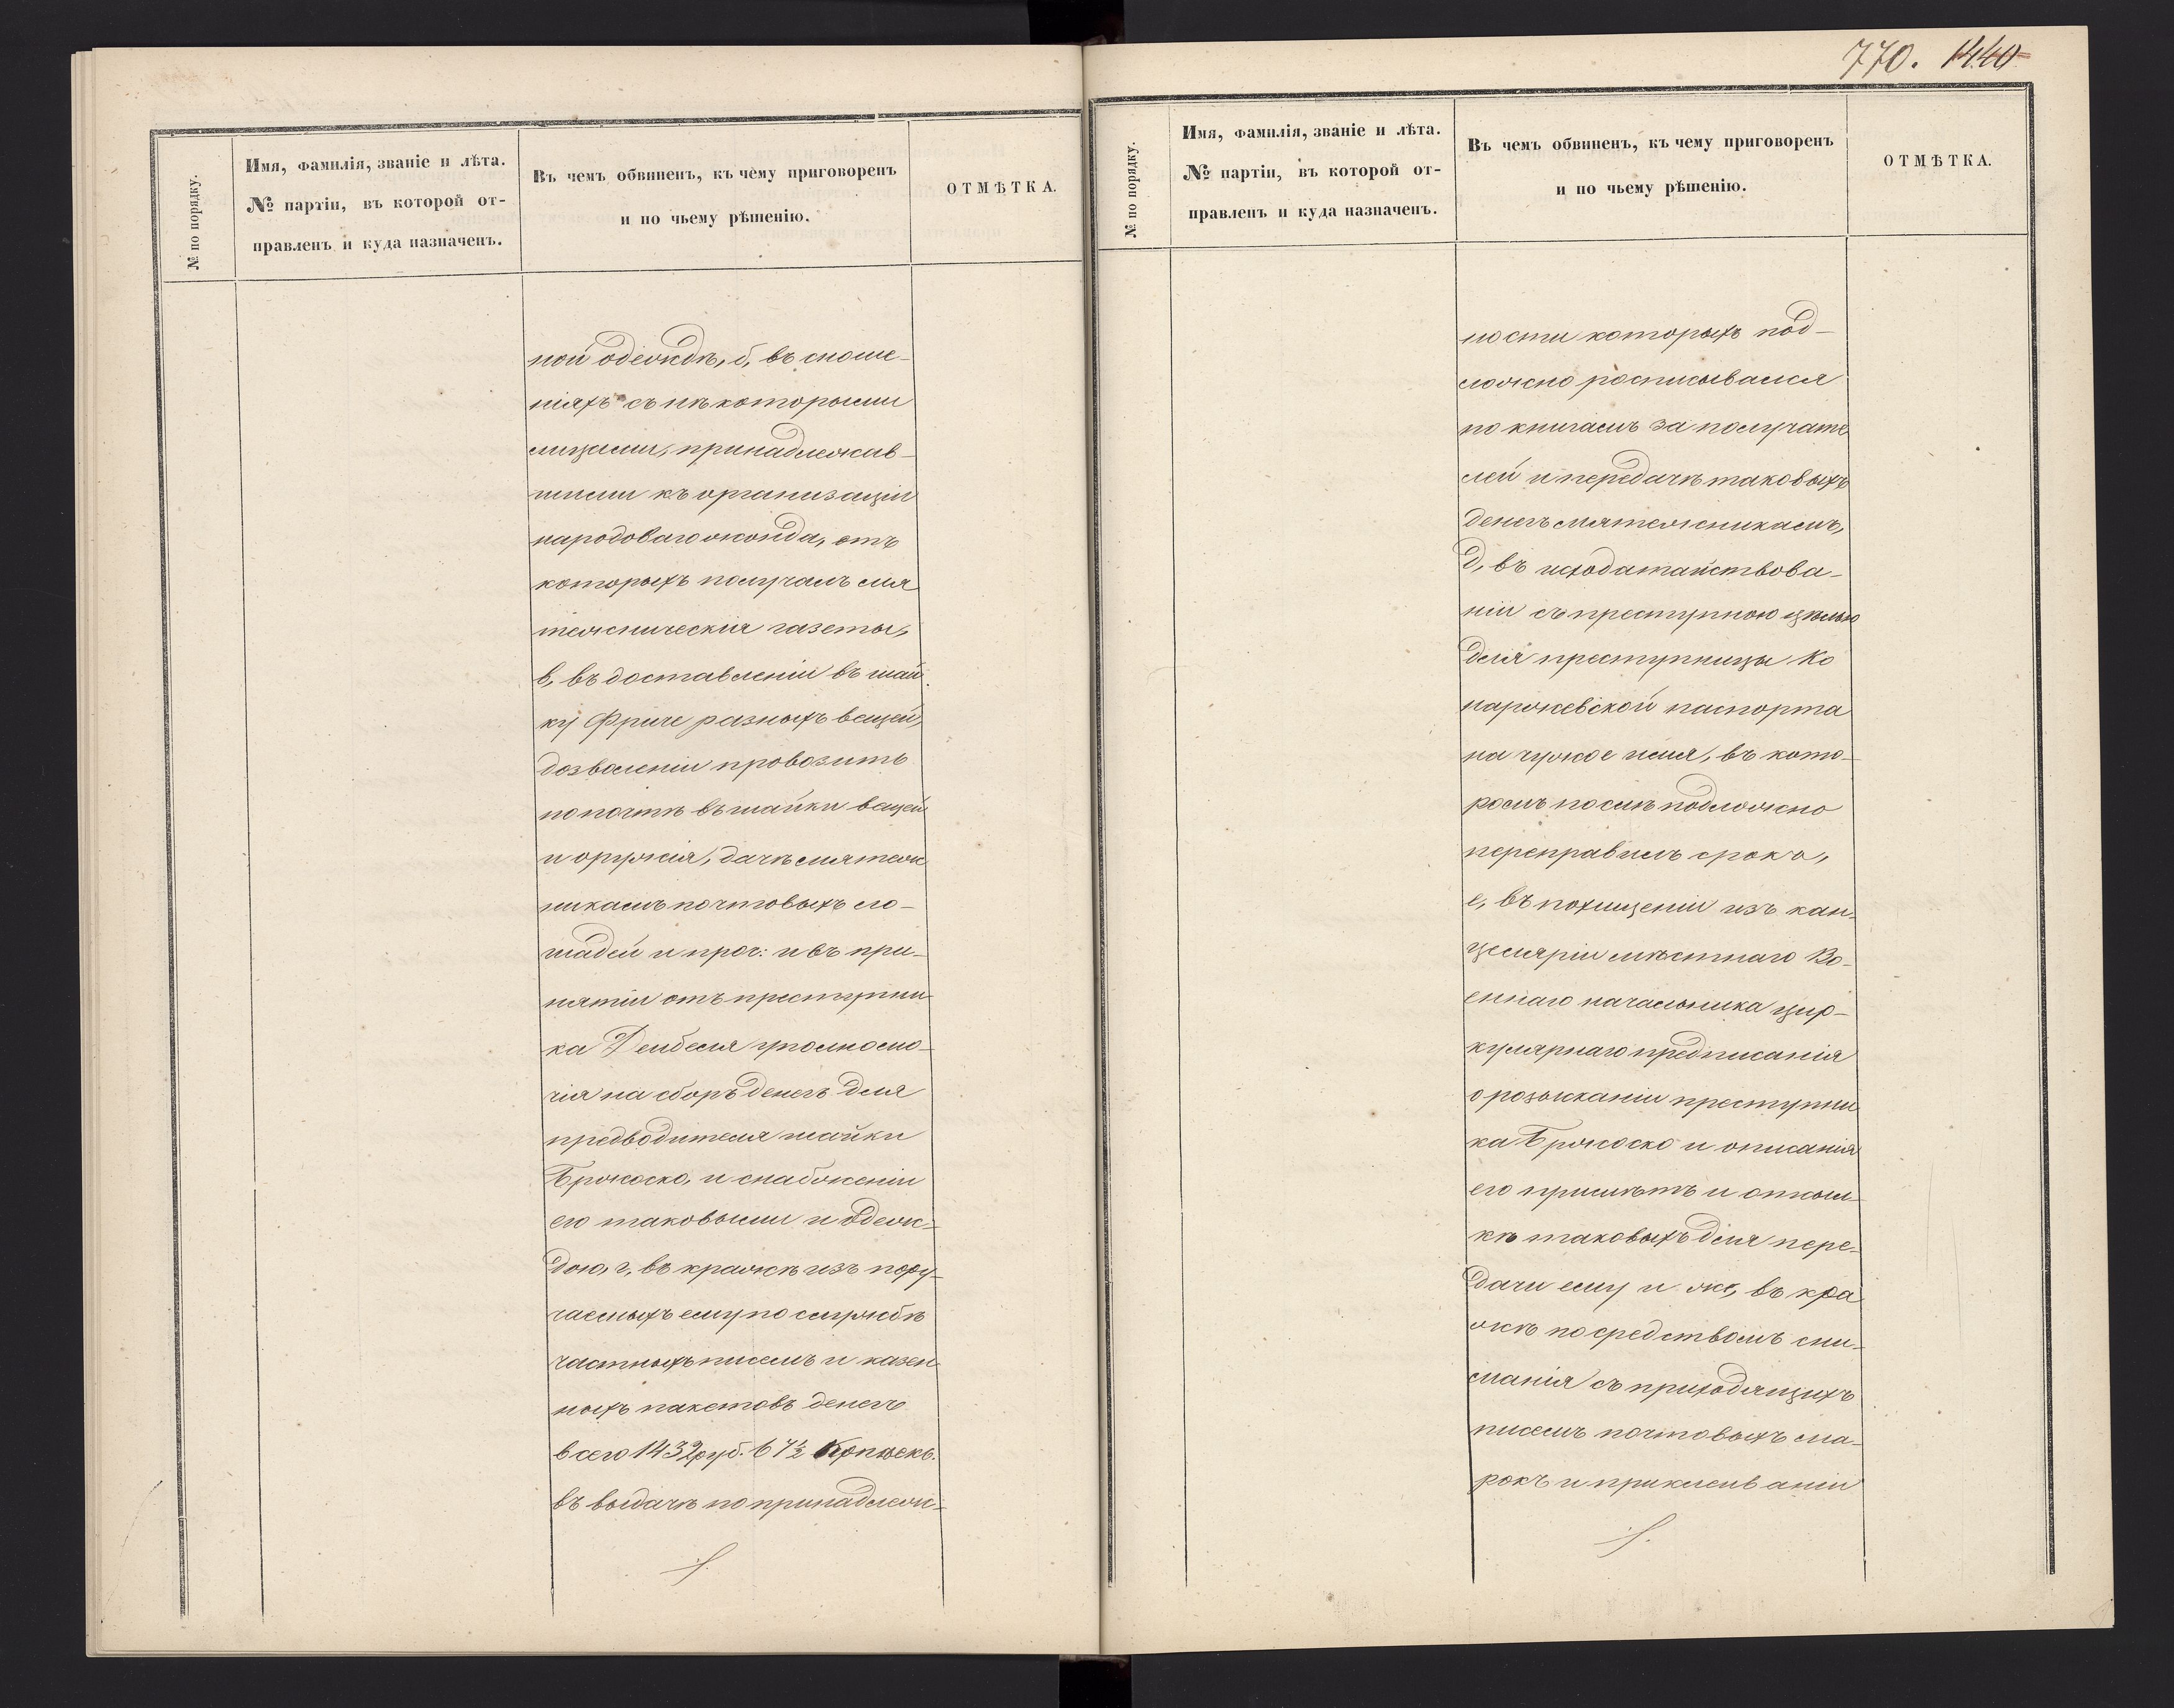 № по порядку.
Имя, фамилія, званіе и лѣта.
№ партіи, въ которой от-
правленъ и куда назначенъ.
Въ чемъ обвиненъ, къ чему приговоренъ
и по чьему рѣшенію.
ОТМѢТКА.
ной одеждѣ, б, въ сноше-
ніяхъ съ нѣкоторыми
лицами, принадлежав-
шими къ организаціи
народоваго жонда, отъ
которыхъ получалъ мя
тежническія газеты,
в, въ доставленіи въ шай
ку Фриче разныхъ вещей,
дозволеніи провозить
по почтѣ въ шайки вещей
и оружія, дачѣ мятеж
никамъ почтовыхъ ло-
шадей и проч: и въ при-
нятіи отъ преступни-
ка Дембеля уполномо-
чія на сборъ денегъ для
предводителя шайки
Бржоско, и снабженіи
его таковыми и одеж-
дою, г, въ кражѣ изъ пору-
чаемыхъ ему по службѣ
частныхъ писемъ и казен-
ныхъ пакетовъ денегъ
всего 1432 руб. 67½ копѣекъ.
въ выдачѣ по принадлеж-
770. 1440
№ по порядку.
Имя, фамилія, званіе и лѣта.
№ партіи, въ которой от-
правленъ и куда назначенъ.
Въ чемъ обвиненъ, къ чему приговоренъ
и по чьему рѣшенію.
ОТМѢТКА.
ности которыхъ под-
ложно росписывался
по книгамъ за получате
лей и передачѣ таковыхъ
денегъ мятежникамъ,
д, въ исходатайствова-
ніи съ преступною цѣлью
для преступницы Ко
наржевской паспорта
на чужое имя, въ кото-
ромъ послѣ подложно
переправилъ срокъ,
е, въ похищеніи изъ кан-
целяріи мѣстнаго Во-
еннаго начальника цир-
кулярнаго предписанія
о розысканіи преступни
ка Бржоско и описанія
его примѣтъ и отсыл-
кѣ таковыхъ для пере-
дачи ему и ж, въ кра
жѣ посредствомъ сни-
манія съ приходящихъ
писемъ почтовыхъ ма-
рокъ и приклеиваніи